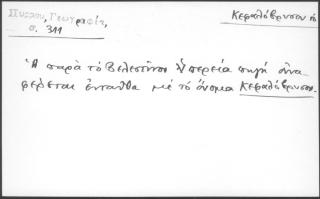 Πύρρου, Γεωγραφία,
σ. 311
Κεφαλόβρυσον τὸ
Ἡ παρὰ τὸ Βελεστῖνον Ὑπερεία πηγὴ ἀνα-
φέρεται ἐνταῦθα μὲ τὸ ὄνομα Κεφαλόβρυσον.